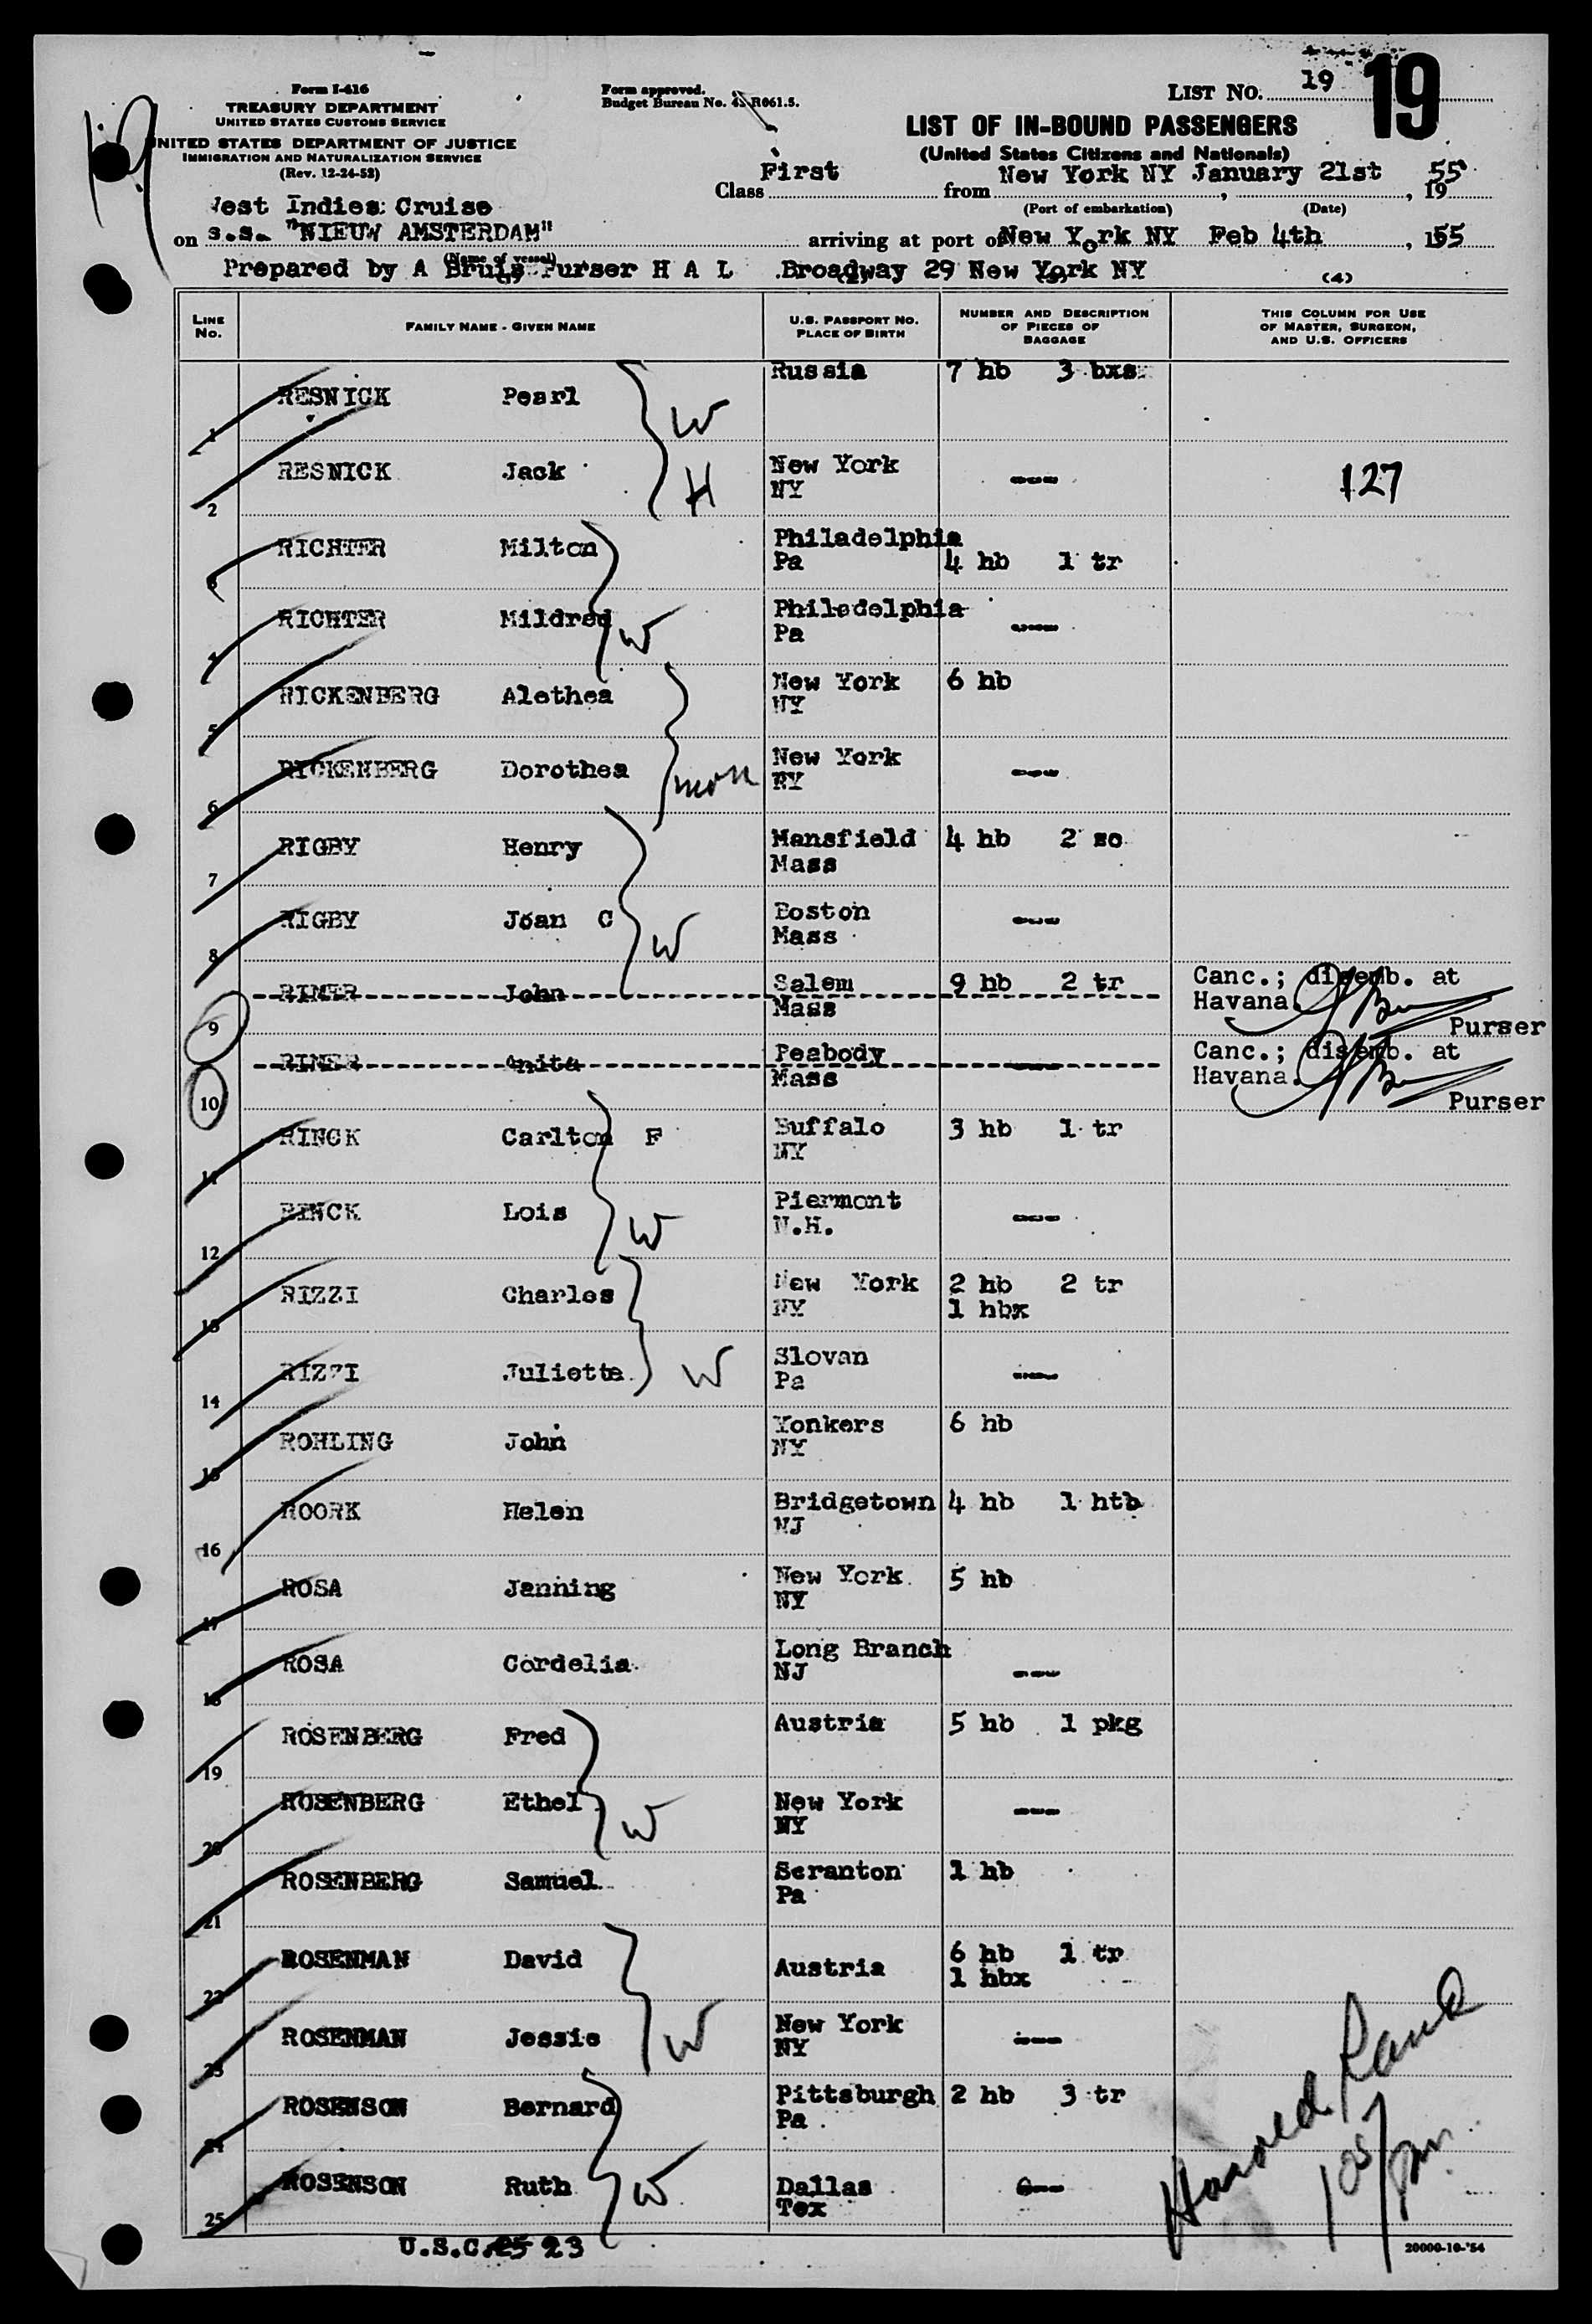 Form I-416
TREASURY DEPARTMENT
UNITED STATES CUSTOMS SERVICE
UNITED STATES DEPARTMENT OF JUSTICE
IMMIGRATION AND NATURALIZATION SERVICE
(Rev. 12-24-52)
Form approved.
Budget Bureau No. 43-R061.5.
LIST No. 19 19
19
LIST OF IN-BOUND PASSENGERS
(United States Citizens and Nationals)
Class First from New York NY January 21st, 1955
(Port of embarkation) (Date)
West Indies Cruise
on s.s. "NIEUW AMSTERDAM" arriving at port of New York NY Feb 4th, 1955
(Name of vessel)
Prepared by A Bruis Purser H A L Broadway 29 New York NY
(4)
LINE No. FAMILY NAME - GIVEN NAME U.S. PASSPORT NO. PLACE OF BIRTH NUMBER AND DESCRIPTION OF PIECES OF BAGGAGE THIS COLUMN FOR USE OF MASTER, SURGEON, AND U.S. OFFICERS
1 RESNICK Pearl W Russia 7 hb 3 bxs
2 RESNICK Jack H New York NY --- 127
3 RICHTER Milton Philadelphia Pa 4 hb 1 tr
4 RICHTER Mildred W Philadelphia Pa ---
5 RICKENBERG Alethea New York NY 6 hb
6 RICKENBERG Dorothea mon New York NY ---
7 RIGBY Henry Mansfield Mass 4 hb 2 sc
8 RIGBY Joan C W Boston Mass ---
9 RIMER John Salem Mass 9 hb 2 tr Canc.; disemb. at Havana. Purser
10 RIMER Anita Peabody Mass --- Canc.; disemb. at Havana. Purser
11 RINCK Carlton F Buffalo NY 3 hb 1 tr
12 RINCK Lois W Piermont N.H. ---
13 RIZZI Charles New York NY 2 hb 2 tr 1 hbx
14 RIZZI Juliette W Slovan Pa ---
15 ROHLING John Yonkers NY 6 hb
16 ROORK Helen Bridgetown NJ 4 hb 1 htb
17 ROSA Janning New York NY 5 hb
18 ROSA Cordelia Long Branch NJ ---
19 ROSENBERG Fred Austria 5 hb 1 pkg
20 ROSENBERG Ethel W New York NY ---
21 ROSENBERG Samuel Scranton Pa 1 hb
22 ROSENMAN David Austria 6 hb 1 tr 1 hbx
23 ROSENMAN Jessie W New York NY ---
24 ROSENSON Bernard Pittsburgh Pa 2 hb 3 tr
25 ROSENSON Ruth W Dallas Tex ---
U.S.C. 25 23
20000-10-'54